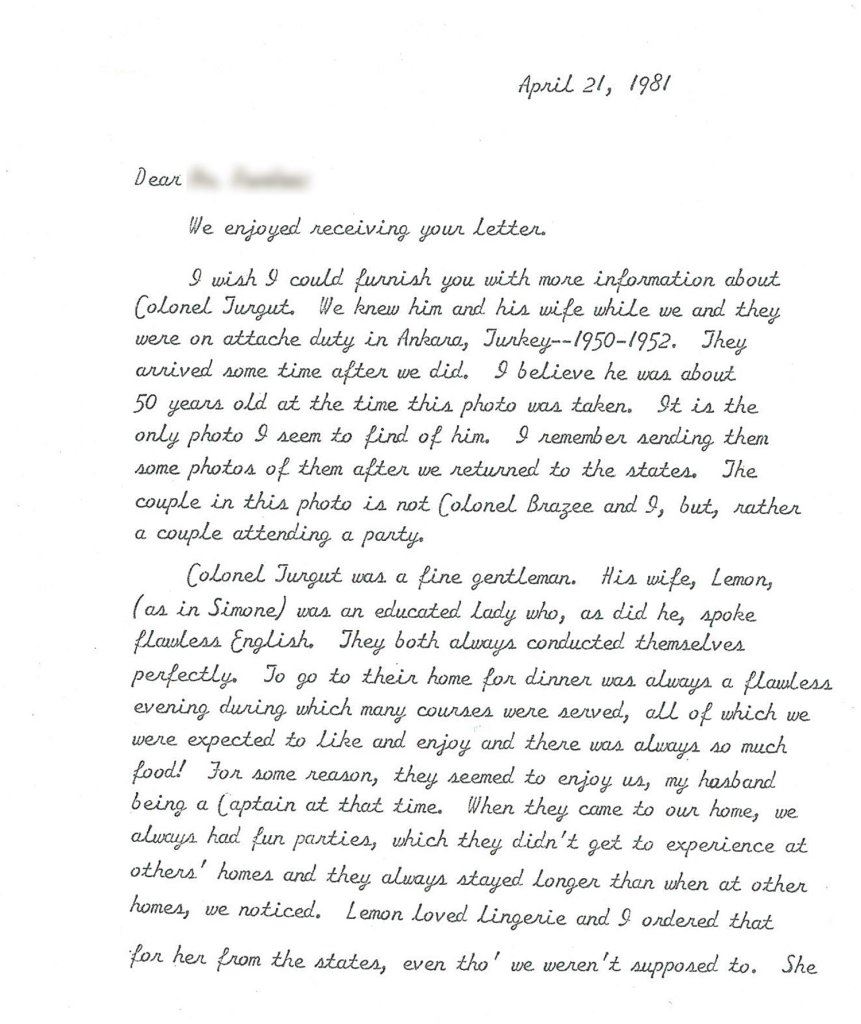 April 21, 1981
Dear
We enjoyed receiving your letter.
I wish I could furnish you with more information about
Colonel Turgut. We knew him and his wife while we and they
were on attache duty in Ankara, Turkey--1950-1952. They
arrived some time after we did. I believe he was about
50 years old at the time this photo was taken. It is the
only photo I seem to find of him. I remember sending them
some photos of them after we returned to the states. The
couple in this photo is not Colonel Brazee and I, but, rather
a couple attending a party.
Colonel Turgut was a fine gentleman. His wife, Lemon,
(as in Simone) was an educated lady who, as did he, spoke
flawless English. They both always conducted themselves
perfectly. To go to their home for dinner was always a flawless
evening during which many courses were served, all of which we
were expected to like and enjoy and there was always so much
food! For some reason, they seemed to enjoy us, my hasband
being a Captain at that time. When they came to our home, we
always had fun parties, which they didn't get to experience at
others' homes and they always stayed longer than when at other
homes, we noticed. Lemon loved lingerie and I ordered that
for her from the states, even tho' we weren't supposed to. She